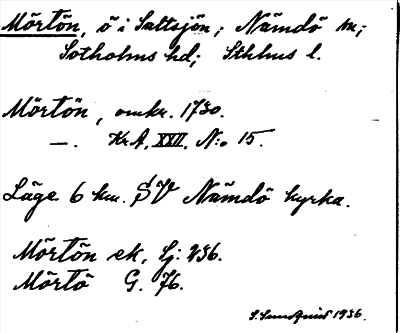 Mörtön, ö i Saltsjön; Nämdö sn;
Sotholms hd; Sthlms l.
Mörtön, omkr. 1730.
—. KrA, XXII, N:o 15.
Läge 6 km. SV Nämdö kyrka.
Mörtön ek, Lj: 236.
Mörtö G. 76.
1936.